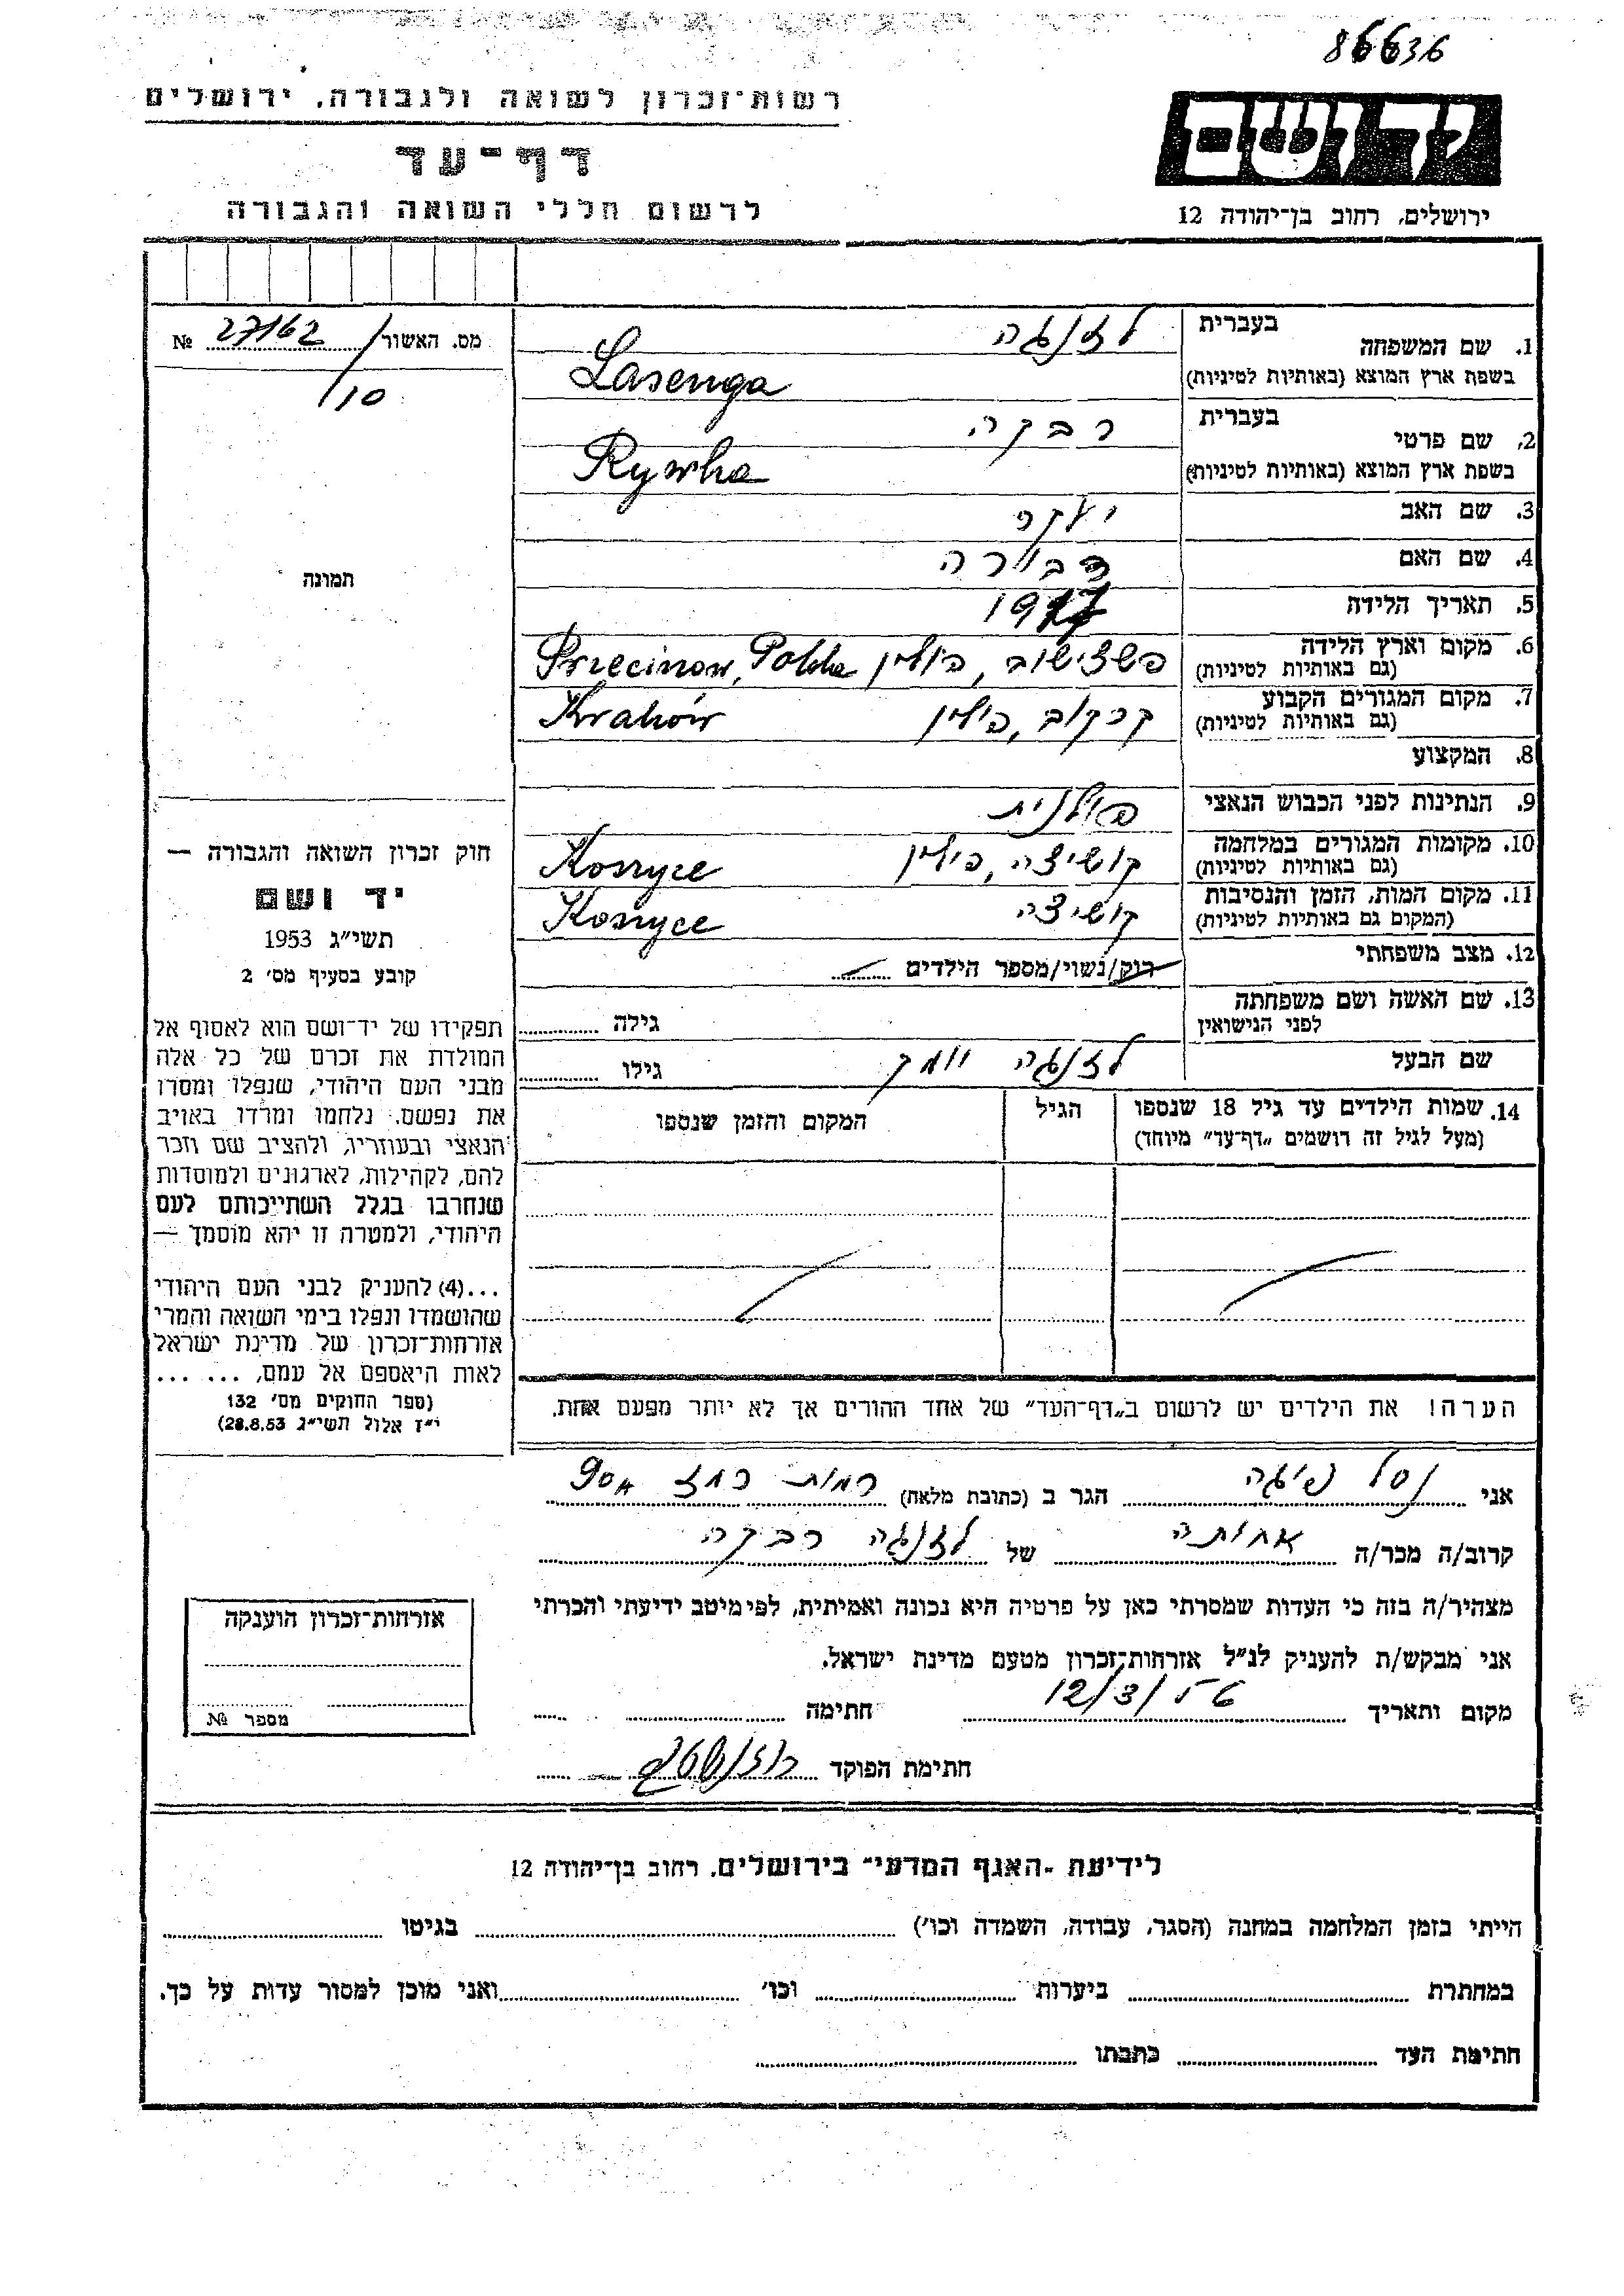 86636
רשות־זכרון לשואה ולגבורה, ירושלים
דף־עד
לרשום חללי השואה והגבורה
יד ושם
ירושלים, רחוב בן־יהודה 12
מס. האשור 27162 №
/10
תמונה
חוק זכרון השואה והגבורה —
יד ושם
תשי״ג 1953
קובע בסעיף מס׳ 2
תפקידו של יד־ושם הוא לאסוף אל
המולדת את זכרם של כל אלה
מבני העם היהודי, שנפלו ומסרו
את נפשם, נלחמו ומרדו באויב
הנאצי ובעוזריו, ולהציב שם וזכר
להם, לקהילות, לארגונים ולמוסדות
שנחרבו בגלל השתייכותם לעם
היהודי, ולמטרה זו יהא מוסמך —
...(4) להעניק לבני העם היהודי
שהושמדו ונפלו בימי השואה והמרי
אזרחות־זכרון של מדינת ישראל
לאות היאספם אל עמם, ... ...
(ספר החוקים מס׳ 132
י״ז אלול תשי״ג 28.8.53)
1. שם המשפחה
בעברית לזנגה
בשפת ארץ המוצא (באותיות לטיניות) Lasenga
2. שם פרטי
בעברית רבקה
בשפת ארץ המוצא (באותיות לטיניות) Rywka
3. שם האב יעקב
4. שם האם דבורה
5. תאריך הלידה
6. מקום וארץ הלידה
(גם באותיות לטיניות) פולין, Polska
7. מקום המגורים הקבוע
(גם באותיות לטיניות) קרקוב, פולין Kraków
8. המקצוע
9. הנתינות לפני הכבוש הנאצי פולנית
10. מקומות המגורים במלחמה
(גם באותיות לטיניות) קושיצה, פולין Koszyce
11. מקום המות, הזמן והנסיבות
(המקום גם באותיות לטיניות) קושיצה Koszyce
12. מצב משפחתי רוק/נשוי/מספר הילדים
13. שם האשה ושם משפחתה
לפני הנישואין גילה
שם הבעל לזנגה גילו
14. שמות הילדים עד גיל 18 שנספו הגיל המקום והזמן שנספו
(מעל לגיל זה רושמים „דף־עד״ מיוחד)
הערה! את הילדים יש לרשום ב„דף־העד״ של אחד ההורים אך לא יותר מפעם אחת.
אני הגר ב (כתובת מלאה) רמות רמז 90
קרוב/ה מכר/ה אחותה של לזנגה רבקה
מצהיר/ה בזה כי העדות שמסרתי כאן על פרטיה היא נכונה ואמיתית, לפי מיטב ידיעתי והכרתי
אני מבקש/ת להעניק לנ״ל אזרחות־זכרון מטעם מדינת ישראל.
מקום ותאריך 12/3/56 חתימה
חתימת הפוקד
אזרחות־זכרון הוענקה
מספר №
לידיעת „האגף המדעי״ בירושלים, רחוב בן־יהודה 12
הייתי בזמן המלחמה במחנה (הסגר, עבודה, השמדה וכו׳) בגיטו
במחתרת ביערות וכו׳ ואני מוכן למסור עדות על כך.
חתימת העד כתבתו